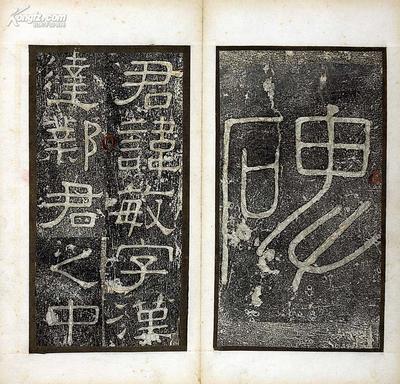 碑
君諱敏字漢
達鄴君之中
Kongfz.com